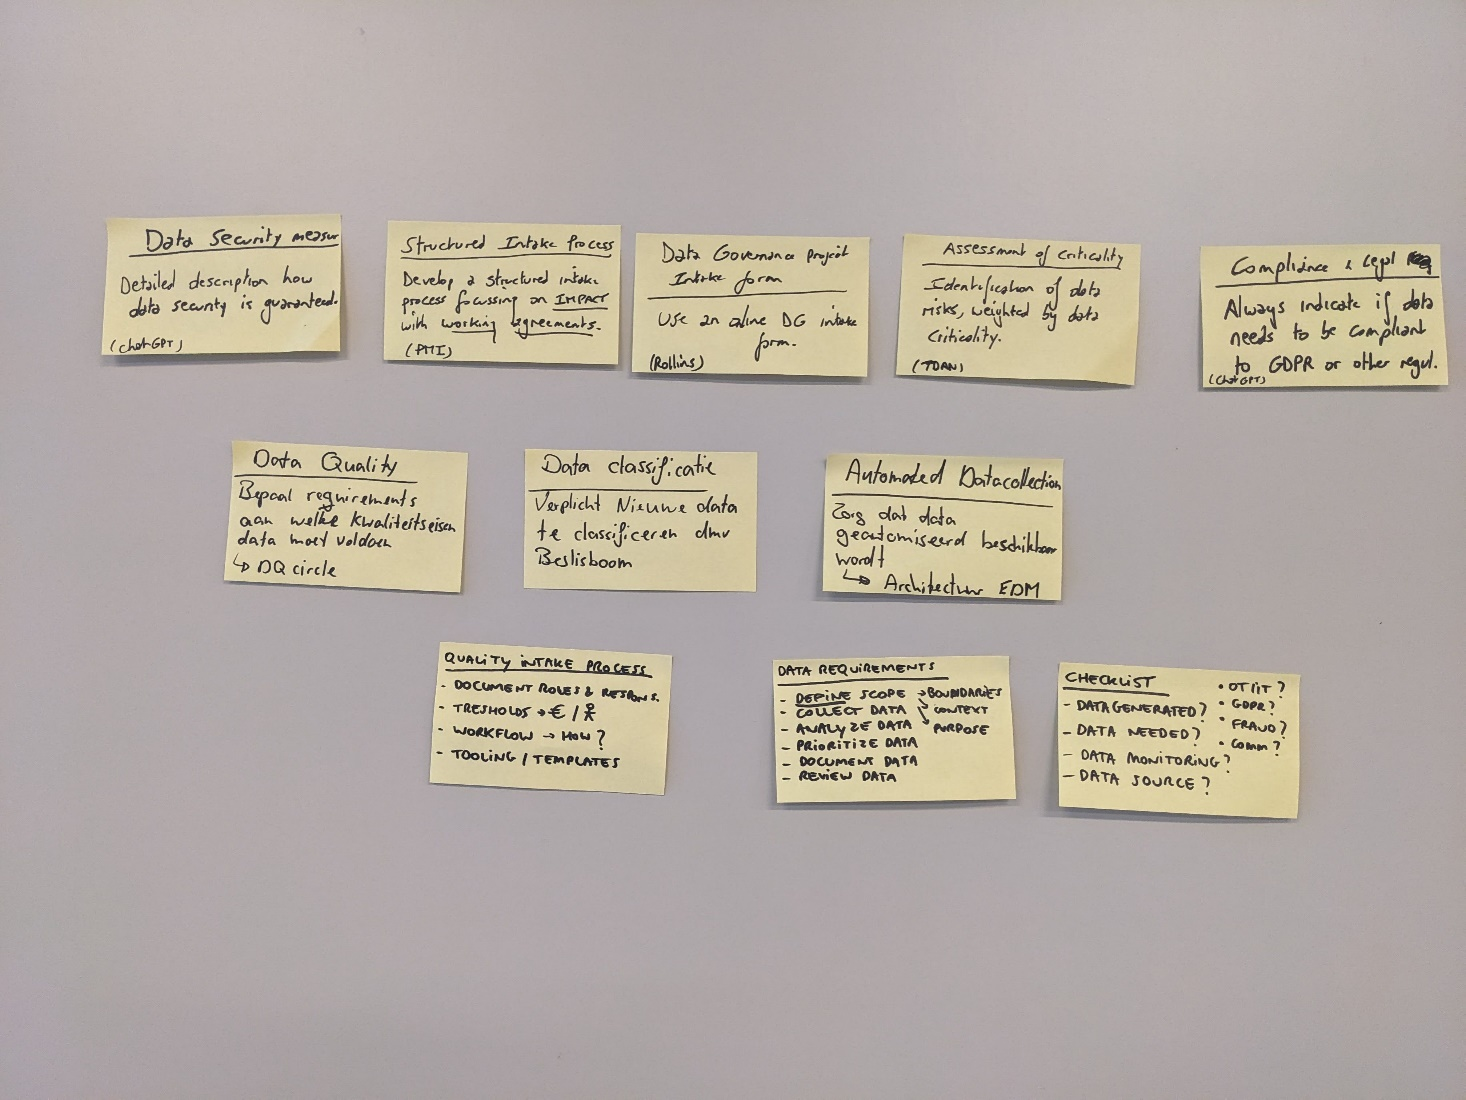 Data Security measur
Detailed description how
data security is guaranteed.
(chatGPT)
Structured Intake Process
Develop a structured intake
process focussing on IMPACT
with working agreements.
(PMI)
Data Governance Project
Intake form
Use an online DG intake
form.
(Rollins)
Assessment of criticality
Identification of data
risks, weighted by data
criticality.
(TDAN)
Compliance & Legal
Always indicate if data
needs to be compliant
to GDPR or other regul.
(ChatGPT)
Data Quality
Bepaal requirements
aan welke kwaliteitseisen
data moet voldoen
↳ DQ circle
Data classificatie
Verplicht Nieuwe data
te classificeren dmv
Beslisboom
Automated Datacollection
Zorg dat data
geautomiseerd beschikbaar
wordt
↳ Architectuur EDM
QUALITY INTAKE PROCESS
- DOCUMENT ROLES & RESPONS.
- TRESHOLDS → € /
- WORKFLOW → HOW?
- TOOLING / TEMPLATES
DATA REQUIREMENTS
- DEFINE SCOPE → BOUNDARIES
- COLLECT DATA ↘ CONTEXT
- ANALYZE DATA ↘ PURPOSE
- PRIORITIZE DATA
- DOCUMENT DATA
- REVIEW DATA
CHECKLIST
- DATA GENERATED?
- DATA NEEDED?
- DATA MONITORING?
- DATA SOURCE?
• OT/IT?
• GDPR?
• FRAUD?
• Comm?